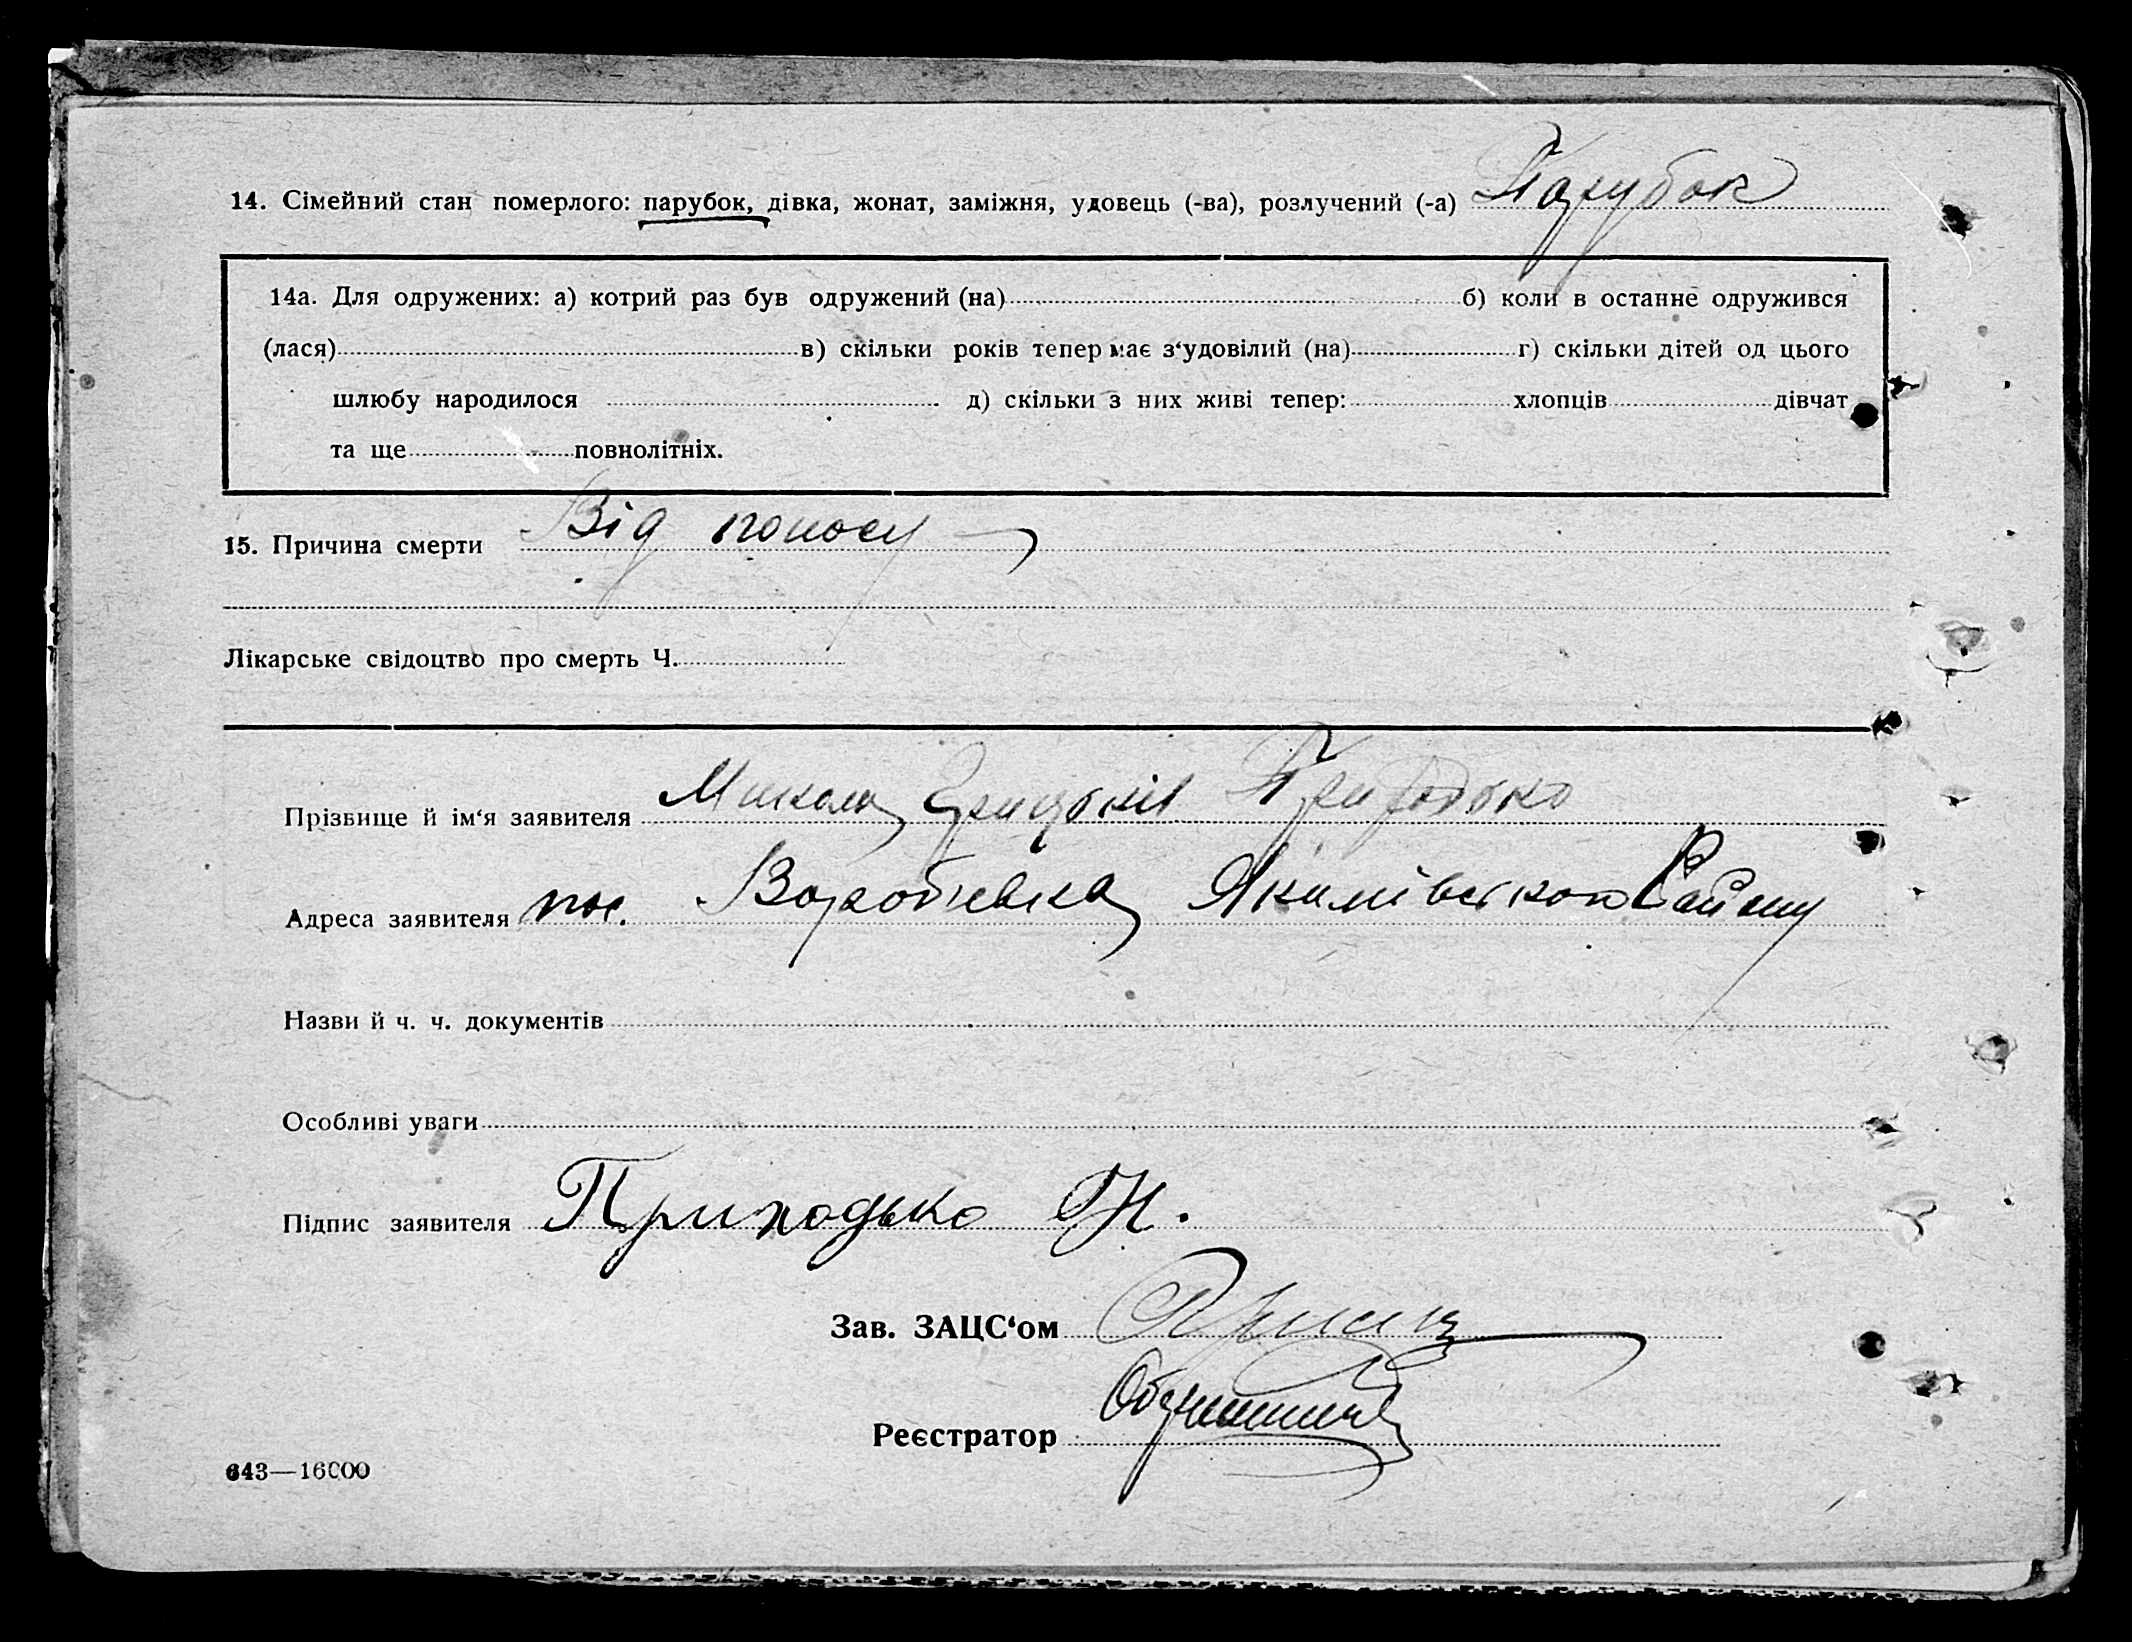 14. Сімейний стан померлого: парубок, дівка, жонат, заміжня, удовець (-ва), розлучений (-а) Парубок
14а. Для одружених: а) котрий раз був одружений (на) б) коли в останнє одружився
(лася) в) скільки років тепер має з‘удовілий (на) г) скільки дітей од цього
шлюбу народилося д) скільки з них живі тепер: хлопців дівчат
та ще повнолітніх.
15. Причина смерти Від поносу
Лікарське свідоцтво про смерть Ч.
Прізвище й ім‘я заявителя Микола Приходько
Адреса заявителя пос. Якимівського Району
Назви й ч. ч. документів
Особливі уваги
Підпис заявителя Приходько Н.
Зав. ЗАЦС‘ом
Реєстратор
643—16000